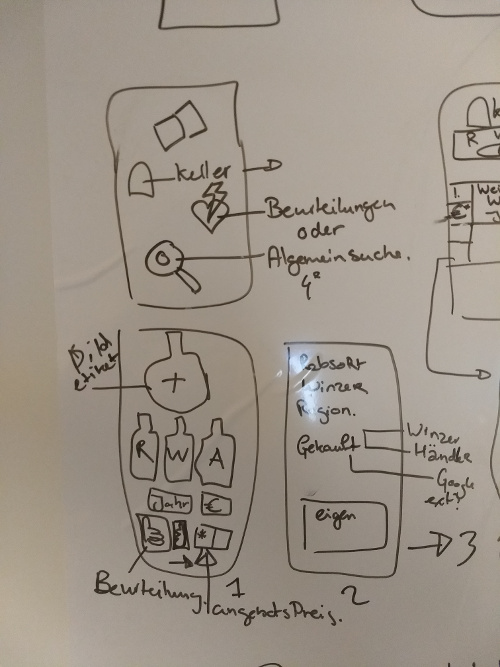 Keller
Beurteilungen
oder
Algemeinsuche.
Bild
etiket
+
R W A
Jahr €
*
Beurteilung
angebotsPreis.
1
Rebsort
Winzer
Region.
Gekauft
Winzer
Händler
Google
eigen
2
3
R
1.
€